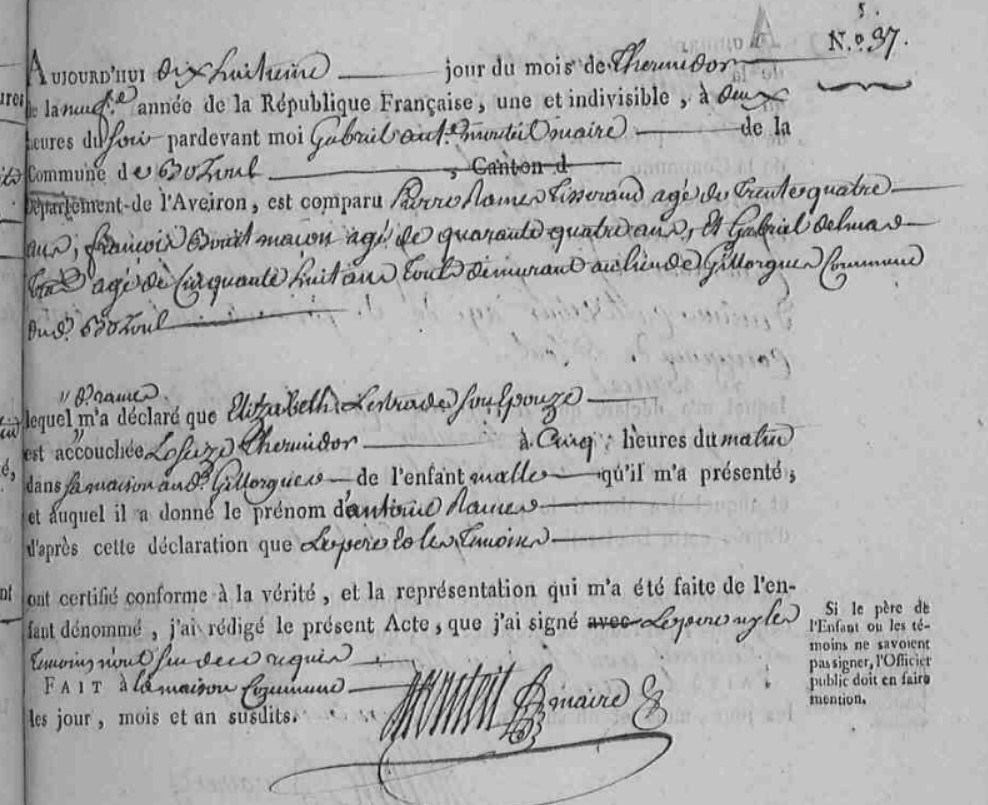 5.
N.º 37.
AUJOURD'HUI dixhuitieme jour du mois de Thermidor
de la neuf.e année de la République Française, une et indivisible, à deux
heures du soir pardevant moi Gabriel ant.e monteil maire de la
Commune de Bozoul, Canton d
Département de l'Aveiron, est comparu Pierre Rames Tisserand agé de Trente quatre
ans, françois Bouit maçon agé de quarante quatre ans, Et Gabriel delmas
agé de Cinquante huit ans tous demurant au lieu de Gillorgues Commune
dud. Bozoul
D. rames
lequel m'a déclaré que Elizabeth Lestrade son Epouze
est accouchée Le seize Thermidor à Cinq heures du matin
dans sa maison aud. Gillorgues de l'enfant malle qu'il m'a présenté,
et auquel il a donné le prénom d'antoine Rames
d'après cette déclaration que Le pere Et les Temoins
ont certifié conforme à la vérité, et la représentation qui m'a été faite de l'en-
fant dénommé, j'ai rédigé le présent Acte, que j'ai signé avec Le pere ny les
temoins n'ont sceu de ce requis
FAIT à la maison Commune
les jour, mois et an susdits.
monteil maire
Si le père de
l'Enfant ou les té-
moins ne savoient
pas signer, l'Officier
public doit en faire
mention.